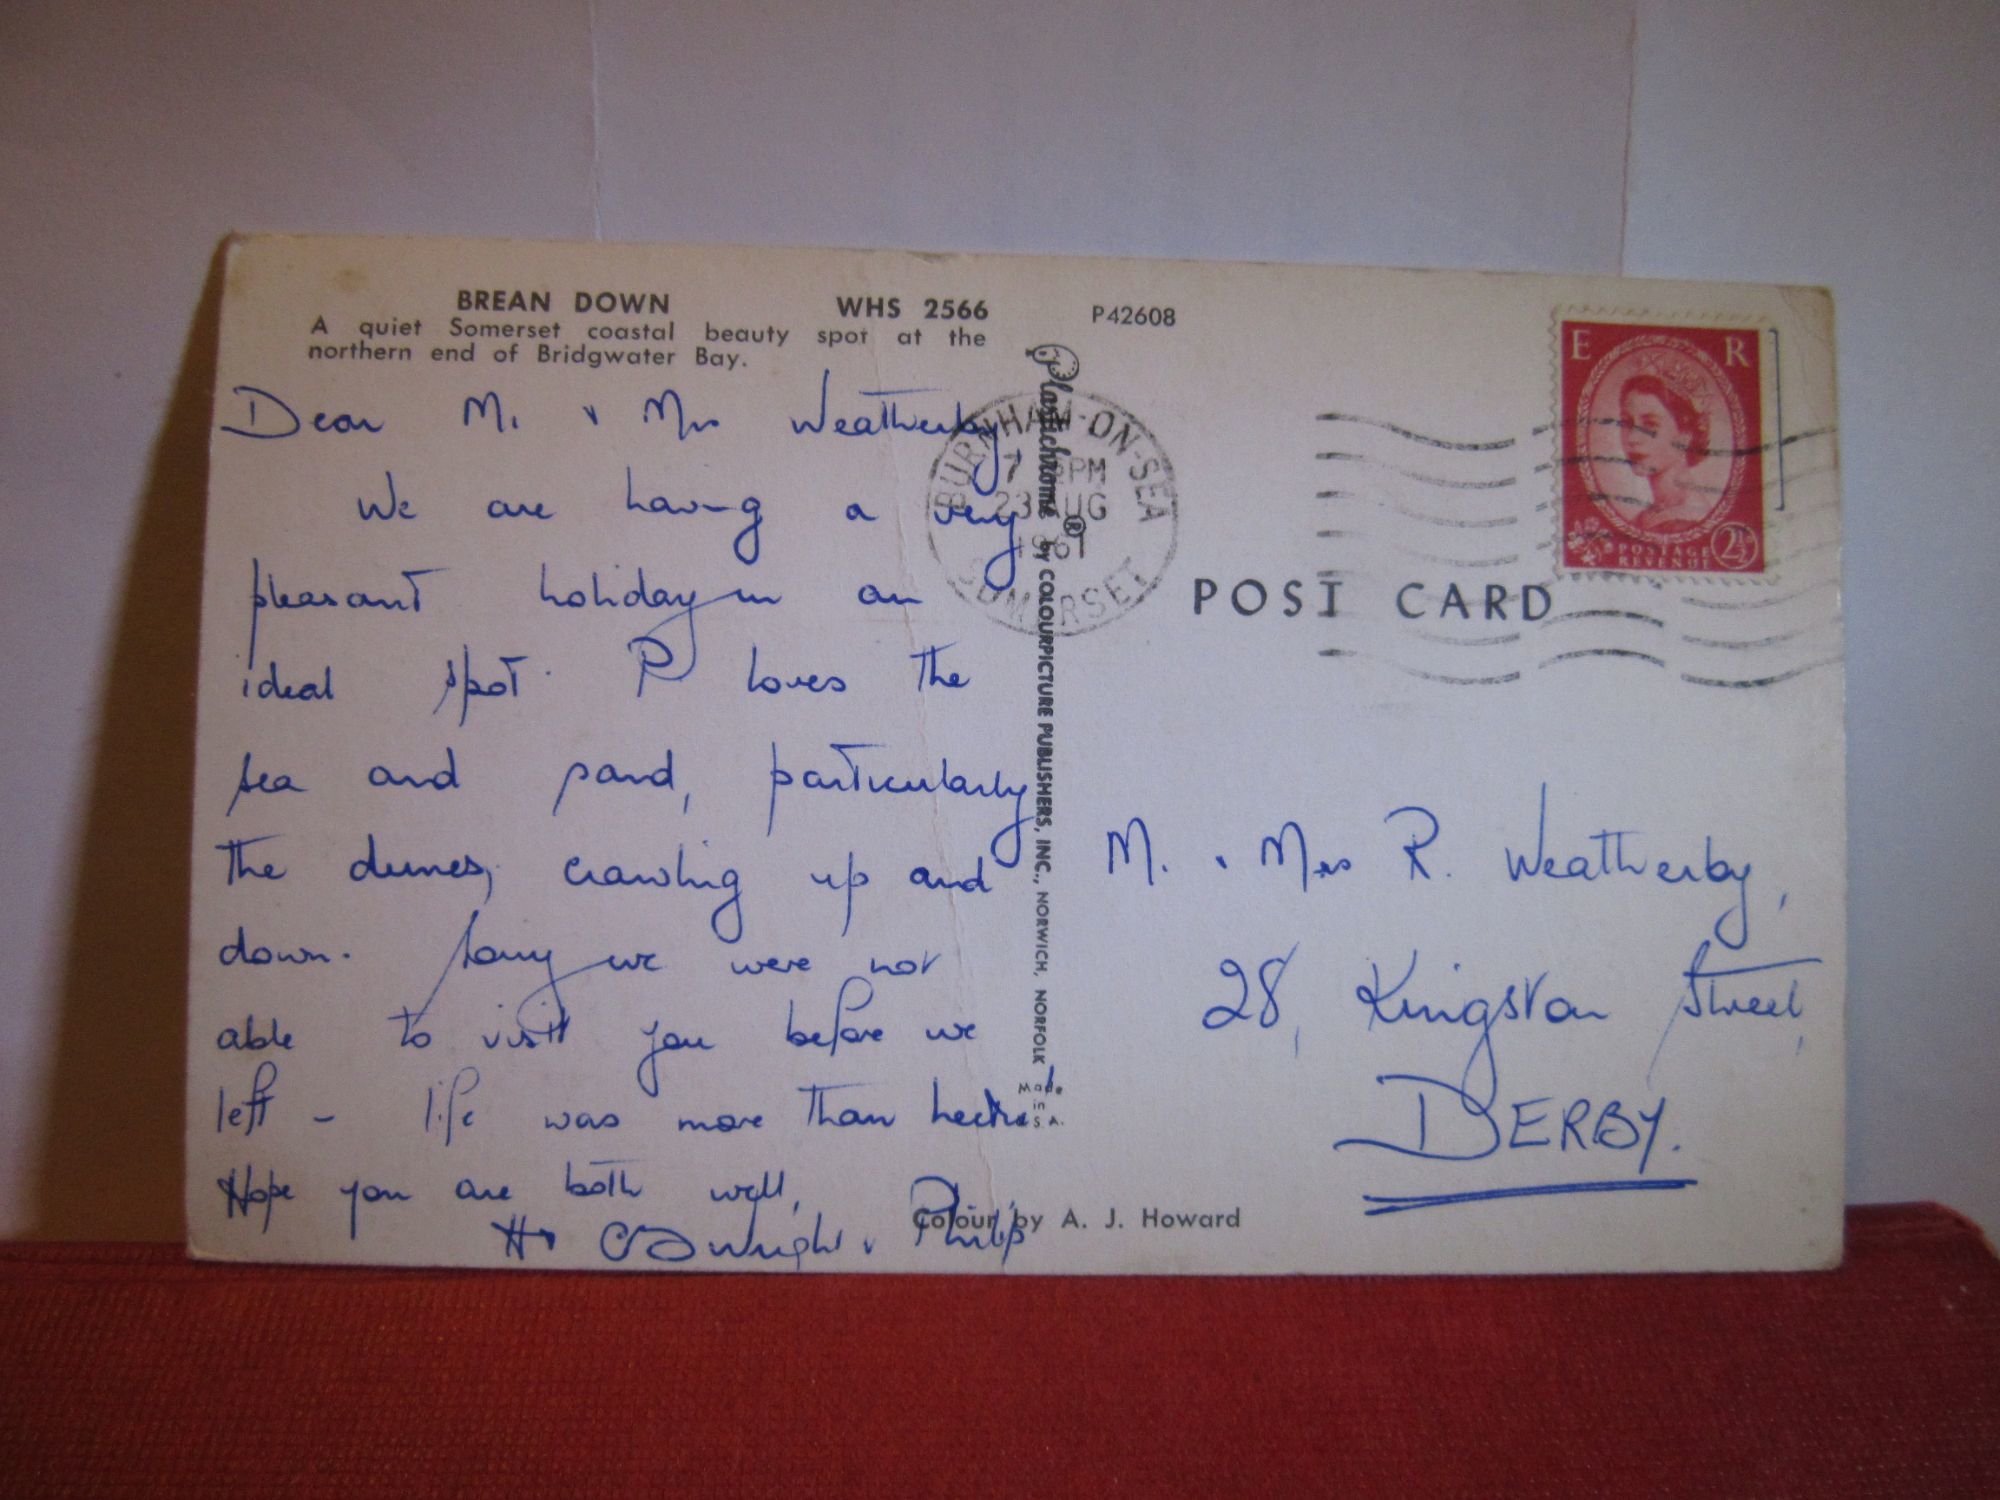 BREAN DOWN WHS 2566 P42608
A quiet Somerset coastal beauty spot at the
northern end of Bridgwater Bay.
Dear Mr & Mrs Weatherby
We are having a very
pleasant holiday in an
ideal spot. P loves the
sea and sand, particularly
the dunes, crawling up and
down. Sorry we were not
able to visit you before we
left - life was more than hectic!
Hope you are both well,
& Philip
Colour by A. J. Howard
Plastichrome ® by COLOURPICTURE PUBLISHERS, INC., NORWICH, NORFOLK
Made
in
S. A.
BURNHAM-ON-SEA
7 PM
23 AUG
1961
SOMERSET
E R
POSTAGE
REVENUE
2½
POST CARD
M. & Mrs R. Weatherby,
28, Kingston Street,
DERBY.